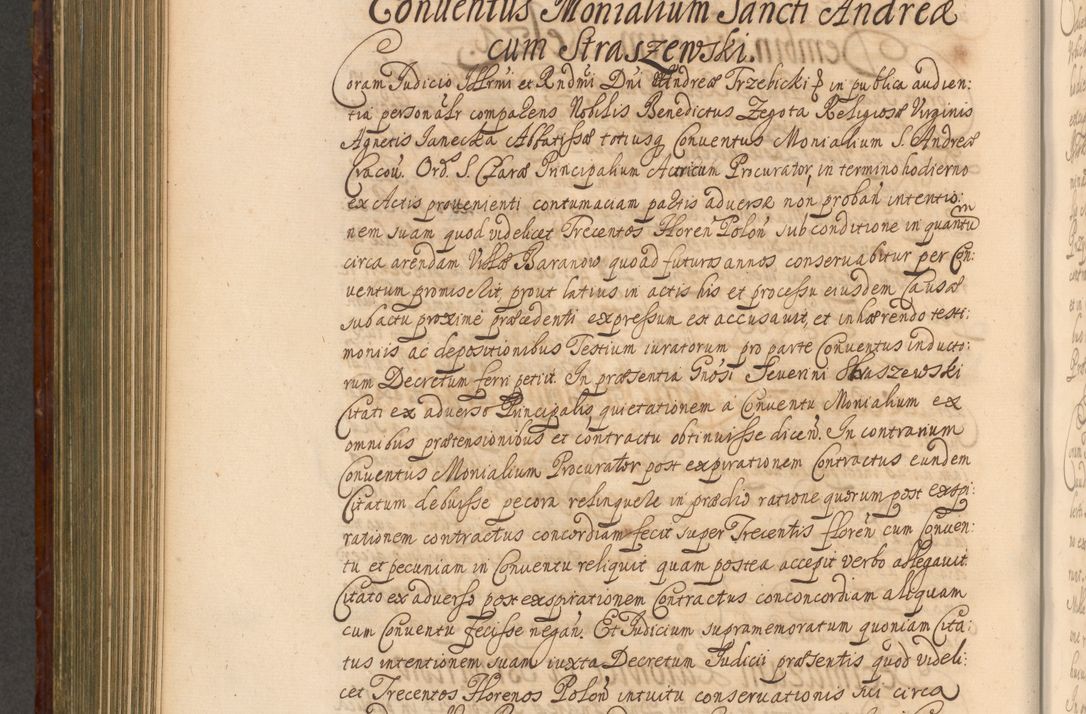 Conventus Monialium Sancti Andreæ
cum Straszewski.
Coram Judicio Illrmi et Rndmi Dni Andreæ Trzebicki in publica audien:
tia personalr comparens Nobilis Benedictus Zegota Religiosæ Virginis
Agnetis Janecka Abbatissæ totiusq Conventus Monialium S. Andreæ
Cracov. Ord. S. Claræ Principalium Actricum Procurator, in termino hodierno
ex Actis provenienti contumaciam partis adversæ non proban intentio:
nem suam quod videlicet Trecentos Floren Polon sub conditione in quantu
circa arendam Villæ Baranow quoad futuros annos conservabitur per Con:
ventum promiserit, prout latius in actis his et processu eiusdem Causæ
sub actu proxime præcedenti expressum est accusavit, et inhærendo testi:
moniis ac depositionibus Testium iuratorum pro parte Conventus inducto:
rum Decretum ferri petiit. In præsentia Gnosi Severini Straszewski
Citati ex adverso Principalis, quietationem a Conventu Monialium ex
omnibus prætensionibus et contractu obtinuisse dicen. In contrarium
Conventus Monialium Procurator post expirationem Contractus eundem
Citatum debuisse pecora relinquere in prædio ratione quorum post expi:
rationem contractus concordiam fecit super Trecentis floren cum Conven:
tu et pecuniam in Conventu reliquit quam postea accepit verbo allegavit.
Citato ex adverso post exspirationem Contractus conconcordiam aliquam
cum Conventu fecisse negan. Et Judicium supramemoratum quoniam Cita:
tus intentionem suam iuxta Decretum Judicii præsentis quod videli:
cet Trecentos Florenos Polon intuitu conservationis sui circa